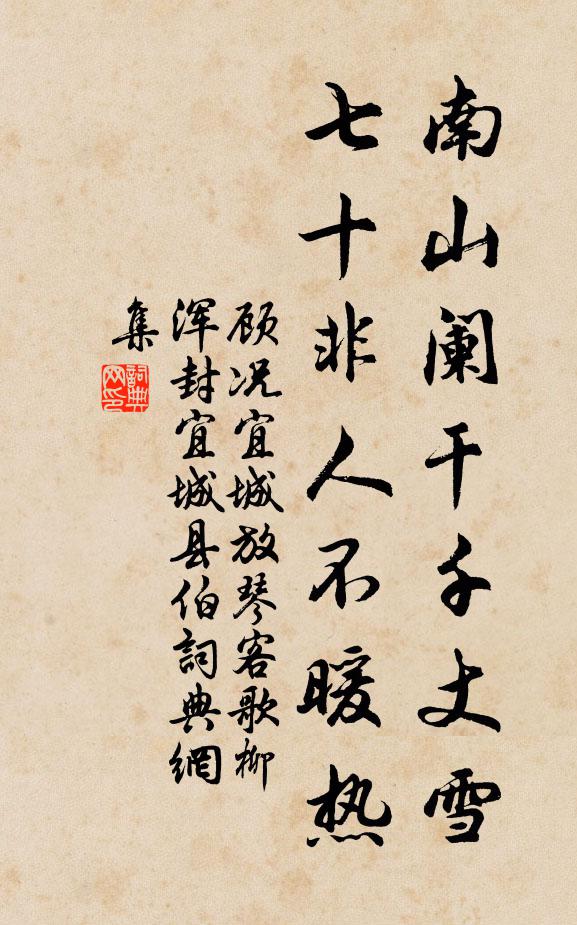 南山阑干千丈雪
七十非人不暖热
顾况宜城放琴客歌柳
浑封宜城县伯詞典網
集
詞典
网印